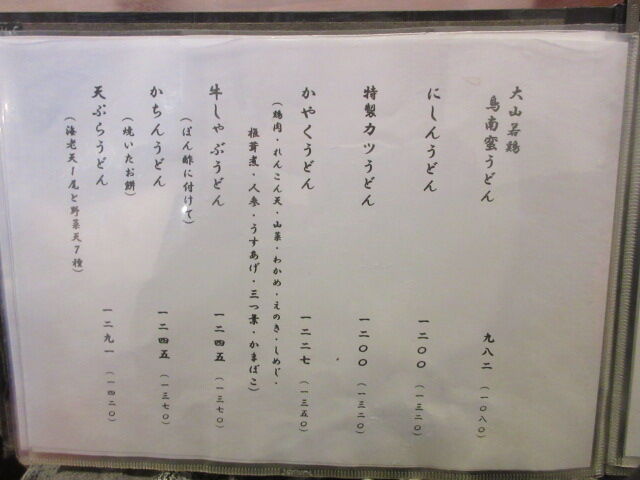 大山若鶏
鳥南蛮うどん
九八二(一〇八〇)
にしんうどん
一二〇〇(一三二〇)
特製カツうどん
一二〇〇(一三二〇)
かやくうどん
一二二七(一三五〇)
(鶏肉・れんこん天・山菜・わかめ・えのき・しめじ・
椎茸煮・人参・うすあげ・三つ葉・かまぼこ)
牛しゃぶうどん
一二四五(一三七〇)
(ぽん酢に付けて)
かちんうどん
一二四五(一三七〇)
(焼いたお餅)
天ぷらうどん
一二九一(一四二〇)
(海老天1尾と野菜天7種)